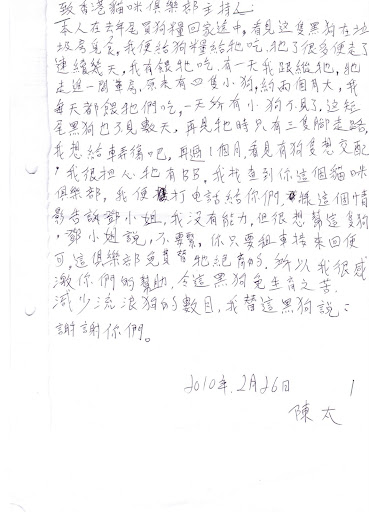 致香港貓咪俱樂部主持人:
本人在去年尾買狗糧回家途中,看見這隻黑狗在垃
圾房覓食,我便給狗糧給牠吃,牠了很多便走了
連續幾天,我有餵牠吃,有一天我跟縱牠,牠
走進一間草房,原來有四隻小狗,約両個月大,我
每天都餵牠們吃,一天所有小狗不見了,這短
尾黑狗也不見數天,再見牠時只有三隻腳走路,
我想給車傷吧,再過1個月,看見有狗隻想交配
,我很担人牠有BB,我找查到你這個貓咪
俱樂部,我便打電話給你們,將這個情
影告訴鄧小姐,我沒有能力,但很想幫這隻狗
,鄧小姐說,不要緊,你只要租車接來回便
可,這俱樂部免費替牠絕育的.所以我很感
激你們的幫助,令這黑狗免生育之苦.
減少流浪狗的數目,我替這黑狗說:
謝謝你們。
2010年.2月26日 1
陳太